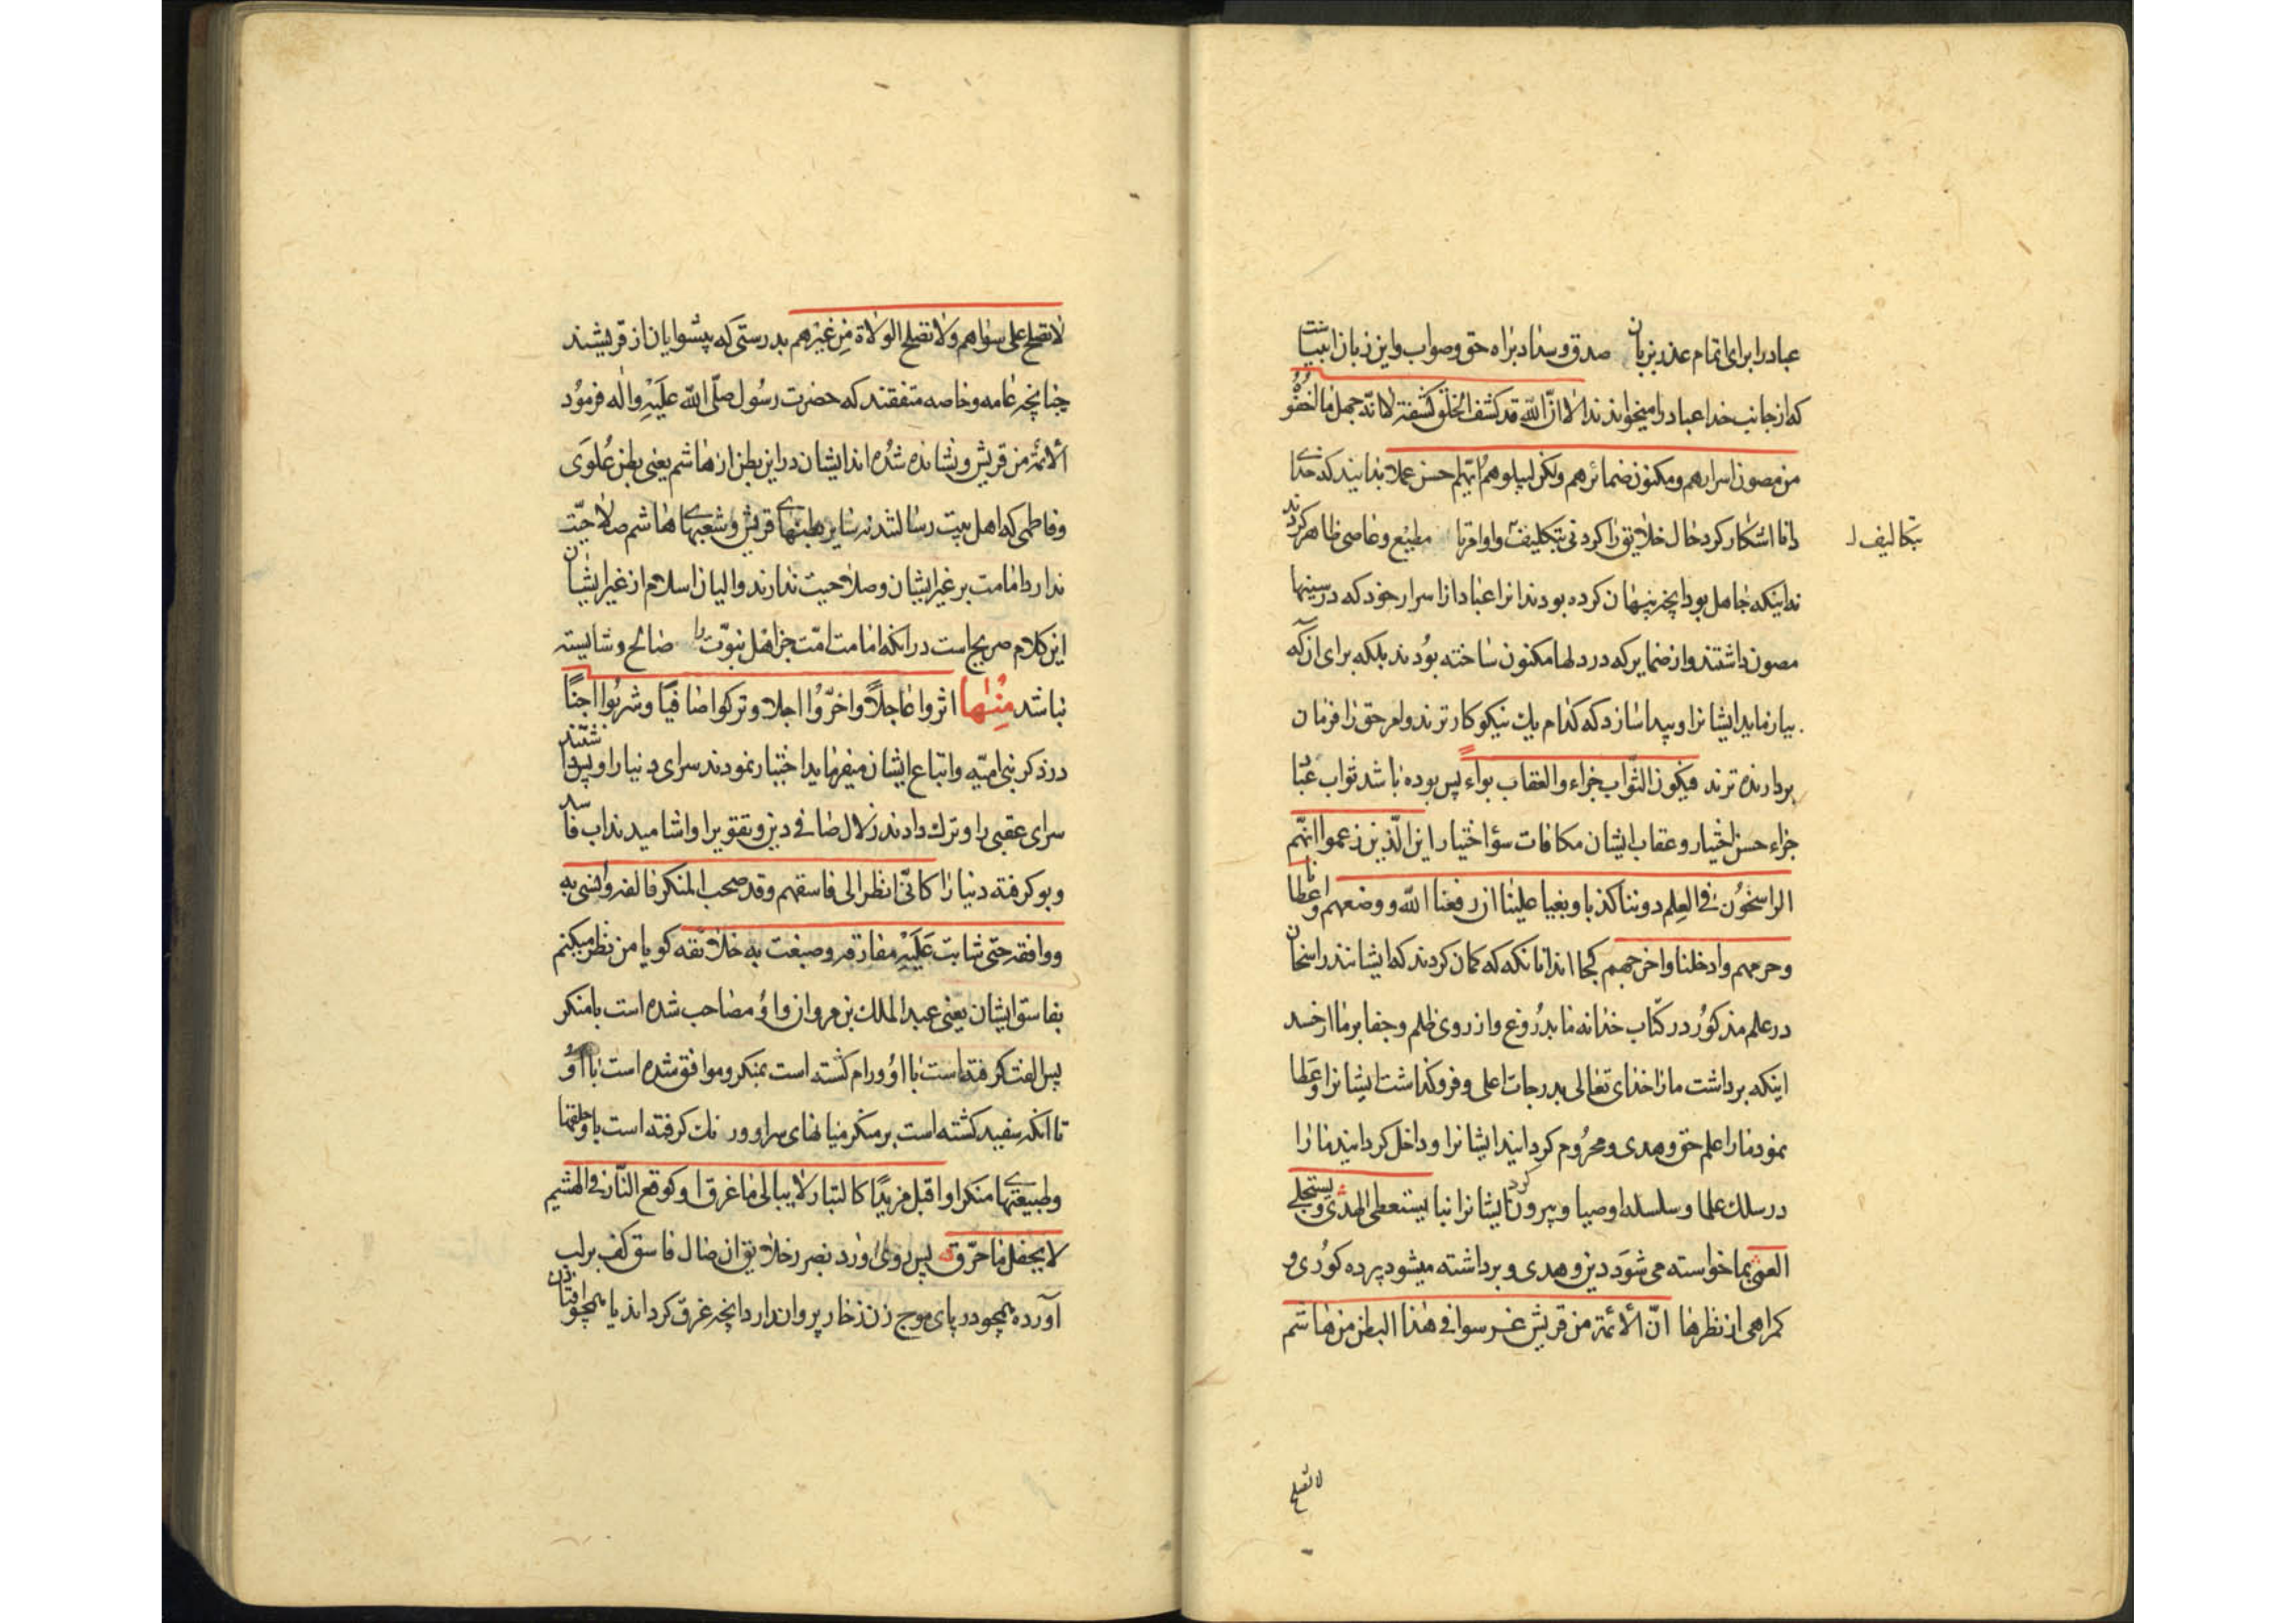 عباد را برای اتمام عذر بزبان صدق و سداد براه حق و صواب و این زبان انبیاست
که از جانب خدا عباد را میخوانند الا ان الله قد کشف الخلق کشفة لا انه جهل ما اخفوه
من مصون اسرارهم و مکنون ضمائرهم ولکن لیبلوهم ایهم احسن عملا بدانید که خدای
دانا اشکار کرد حال خلایق را کردنی بتکلیف و اوامر تا مطیع و عاصی ظاهر کردند
تکالیف
نه اینکه جاهل بود انچه پنهان کرده بودند انرا عباد از اسرار خود که در سینها
مصون داشتند و از ضمایر که در دلها مکنون ساخته بودند بلکه برای ان که
بیازماید ایشانرا و پیدا سازد که کدام یك نیکو کارترند و امر حق را فرمان
بردارنده ترند فیکون الثواب جزاء والعقاب بواء پس بوده باشد ثواب عباد
جزاء حسن اختیار و عقاب ایشان مکافات سوء اختیار این الذین زعموا انهم
الراسخون فی العلم دوننا کذبا و بغیا علینا ان رفعنا الله و وضعهم و اعطانا
و حرمهم و ادخلنا و اخرجهم کجا اند انانکه که کمان کردند که ایشانند راسخان
در علم مذکور در کتاب خدا نه ما بدروغ و از روی ظلم و جفا بر ما از حسد
اینکه برداشت ما را خدای تعالی بدرجات اعلی و فرو کذاشت ایشانرا و عطا
نمود ما را علم حق و هدی و محروم کردانید ایشانرا و داخل کردانید ما را
در سلك علما و سلسله اوصیا و بیرون کرد ایشانرا بنا یستعطی الهدی و یستجلی
العمی بما خواسته می شود دین و هدی و برداشته میشود پرده کوری و
کمراهی از نظرها ان الأئمة من قریش غرسوا فی هذا البطن من هاشم
لا تصلح
لا تصلح علی سواهم ولا تصلح الولاة من غیرهم بدرستی که پیشوایان از قریشند
چنانچه عامه و خاصه متفقند که حضرت رسول صلی الله علیه واله فرمود
الأئمة من قریش و نشانده شده اند ایشان در این بطن از هاشم یعنی بطن علوی
و فاطمی که اهل بیت رسالتند نه سایر بطنهای قریش و شعبهای هاشم صلاحیت
ندارد امامت بر غیر ایشان و صلاحیت ندارند والیان اسلام از غیر ایشان
این کلام صریح است در انکه امامت امت جز اهل نبوت را صالح و شایسته
نباشد منها اثروا عاجلا و اخروا اجلا و ترکوا صافیا و شربوا اجنا
در ذکر بنی امیه و اتباع ایشان میفرماید اختیار نمودند سرای دنیا را و پس انداشتند
سرای عقبی را و ترك دادند زلال صافی دین و تقوی را و اشامیدند اب فاسد
و بو کرفته دنیا را کانی انظر الی فاسقهم و قد صحب المنکر فالفه و انسی به
و وافقه حتی شابت علیه مفارقه و صبغت به خلائقه کویا من نظر میکنم
بفاسق ایشان یعنی عبد الملك بن مروان و او مصاحب شده است با منکر
پس الفت کرفته است با او و رام کشته است بمنکر و موافق شده است با او
تا انکه سفید کشته است بر منکر میانهای سر او و رنك کرفته است با و خلقتها
و طبیعتهای منکر او اقبل مزبدا کالتیار لا یبالی ما غرق او کوقع النار فی الهشیم
لا یحفل ما حرق پس روی اورد بضرر خلایق ان ضال فاسق کف بر لب
آورده همچو دریای موج زن ذخار پروا ندارد انچه غرق کرداند یا همچو افتادن